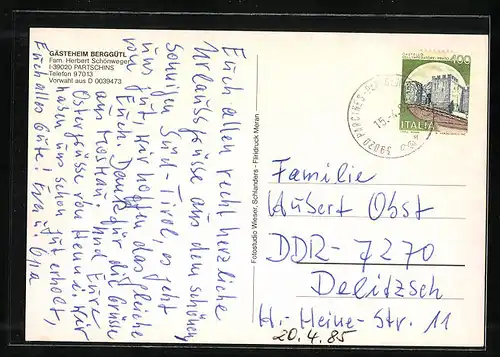 GÄSTEHEIM BERGGÜTL
Fam. Herbert Schönweger
I-39020 PARTSCHINS
Telefon 97013
Vorwahl aus D 0039473
Euch allen recht herzliche
Urlaubsgrüsse aus dem schönen,
sonnigen Süd-Tirol, es geht
uns gut, wir hoffen das gleiche
von Euch. Danke für die Grüsse
aus und Eure
Ostergrüsse von . Wir
haben uns schon gut erholt,
Euch alles Gute! Eva u.
Fotostudio Wieser, Schlanders - Flirdruck Meran
CASTELLO
400
ITALIA
39020 PARCINES
15.4.
Familie
Hubert Obst
DDR-7270
Delitzsch
H.-Heine-Str. 11
20.4.85